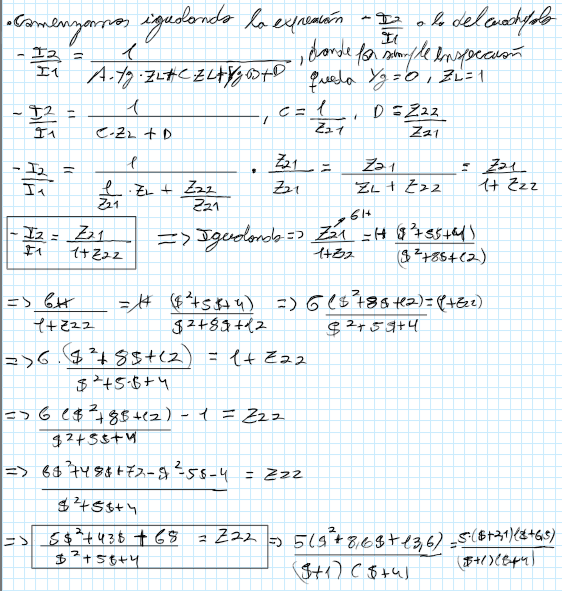 • Comenzamos igualando la expresión - I2/I1 a la del cuadripolo
- I2/I1 = 1 / (A·Yg·ZL + C·ZL + Yg·B + D) , donde por simple inspección queda Yg = 0 , ZL = 1
- I2/I1 = 1 / (C·ZL + D) , C = 1/Z21 , D = Z22/Z21
- I2/I1 = 1 / (1/Z21 · ZL + Z22/Z21) · Z21/Z21 = Z21 / (ZL + Z22) = Z21 / (1 + Z22)
- I2/I1 = Z21 / (1 + Z22) => Igualando => Z21 6H / (1 + Z2) = H ($²+5$+4) / ($²+8$+12)
=> 6H / (1 + Z22) = H ($²+5$+4) / ($²+8$+12) => 6 ($²+8$+12) / ($²+5$+4) = (1+Z22)
=> 6 · ($²+8$+12) / ($²+5·$+4) = 1 + Z22
=> 6 ($²+8$+12) / ($²+5$+4) - 1 = Z22
=> (6$²+48$+72-$²-5$-4) / ($²+5$+4) = Z22
=> (5$²+43$+68) / ($²+5$+4) = Z22 => 5($²+8,6$+13,6) / (($+1)($+4)) = 5·($+2,1)($+6,5) / (($+1)($+4))